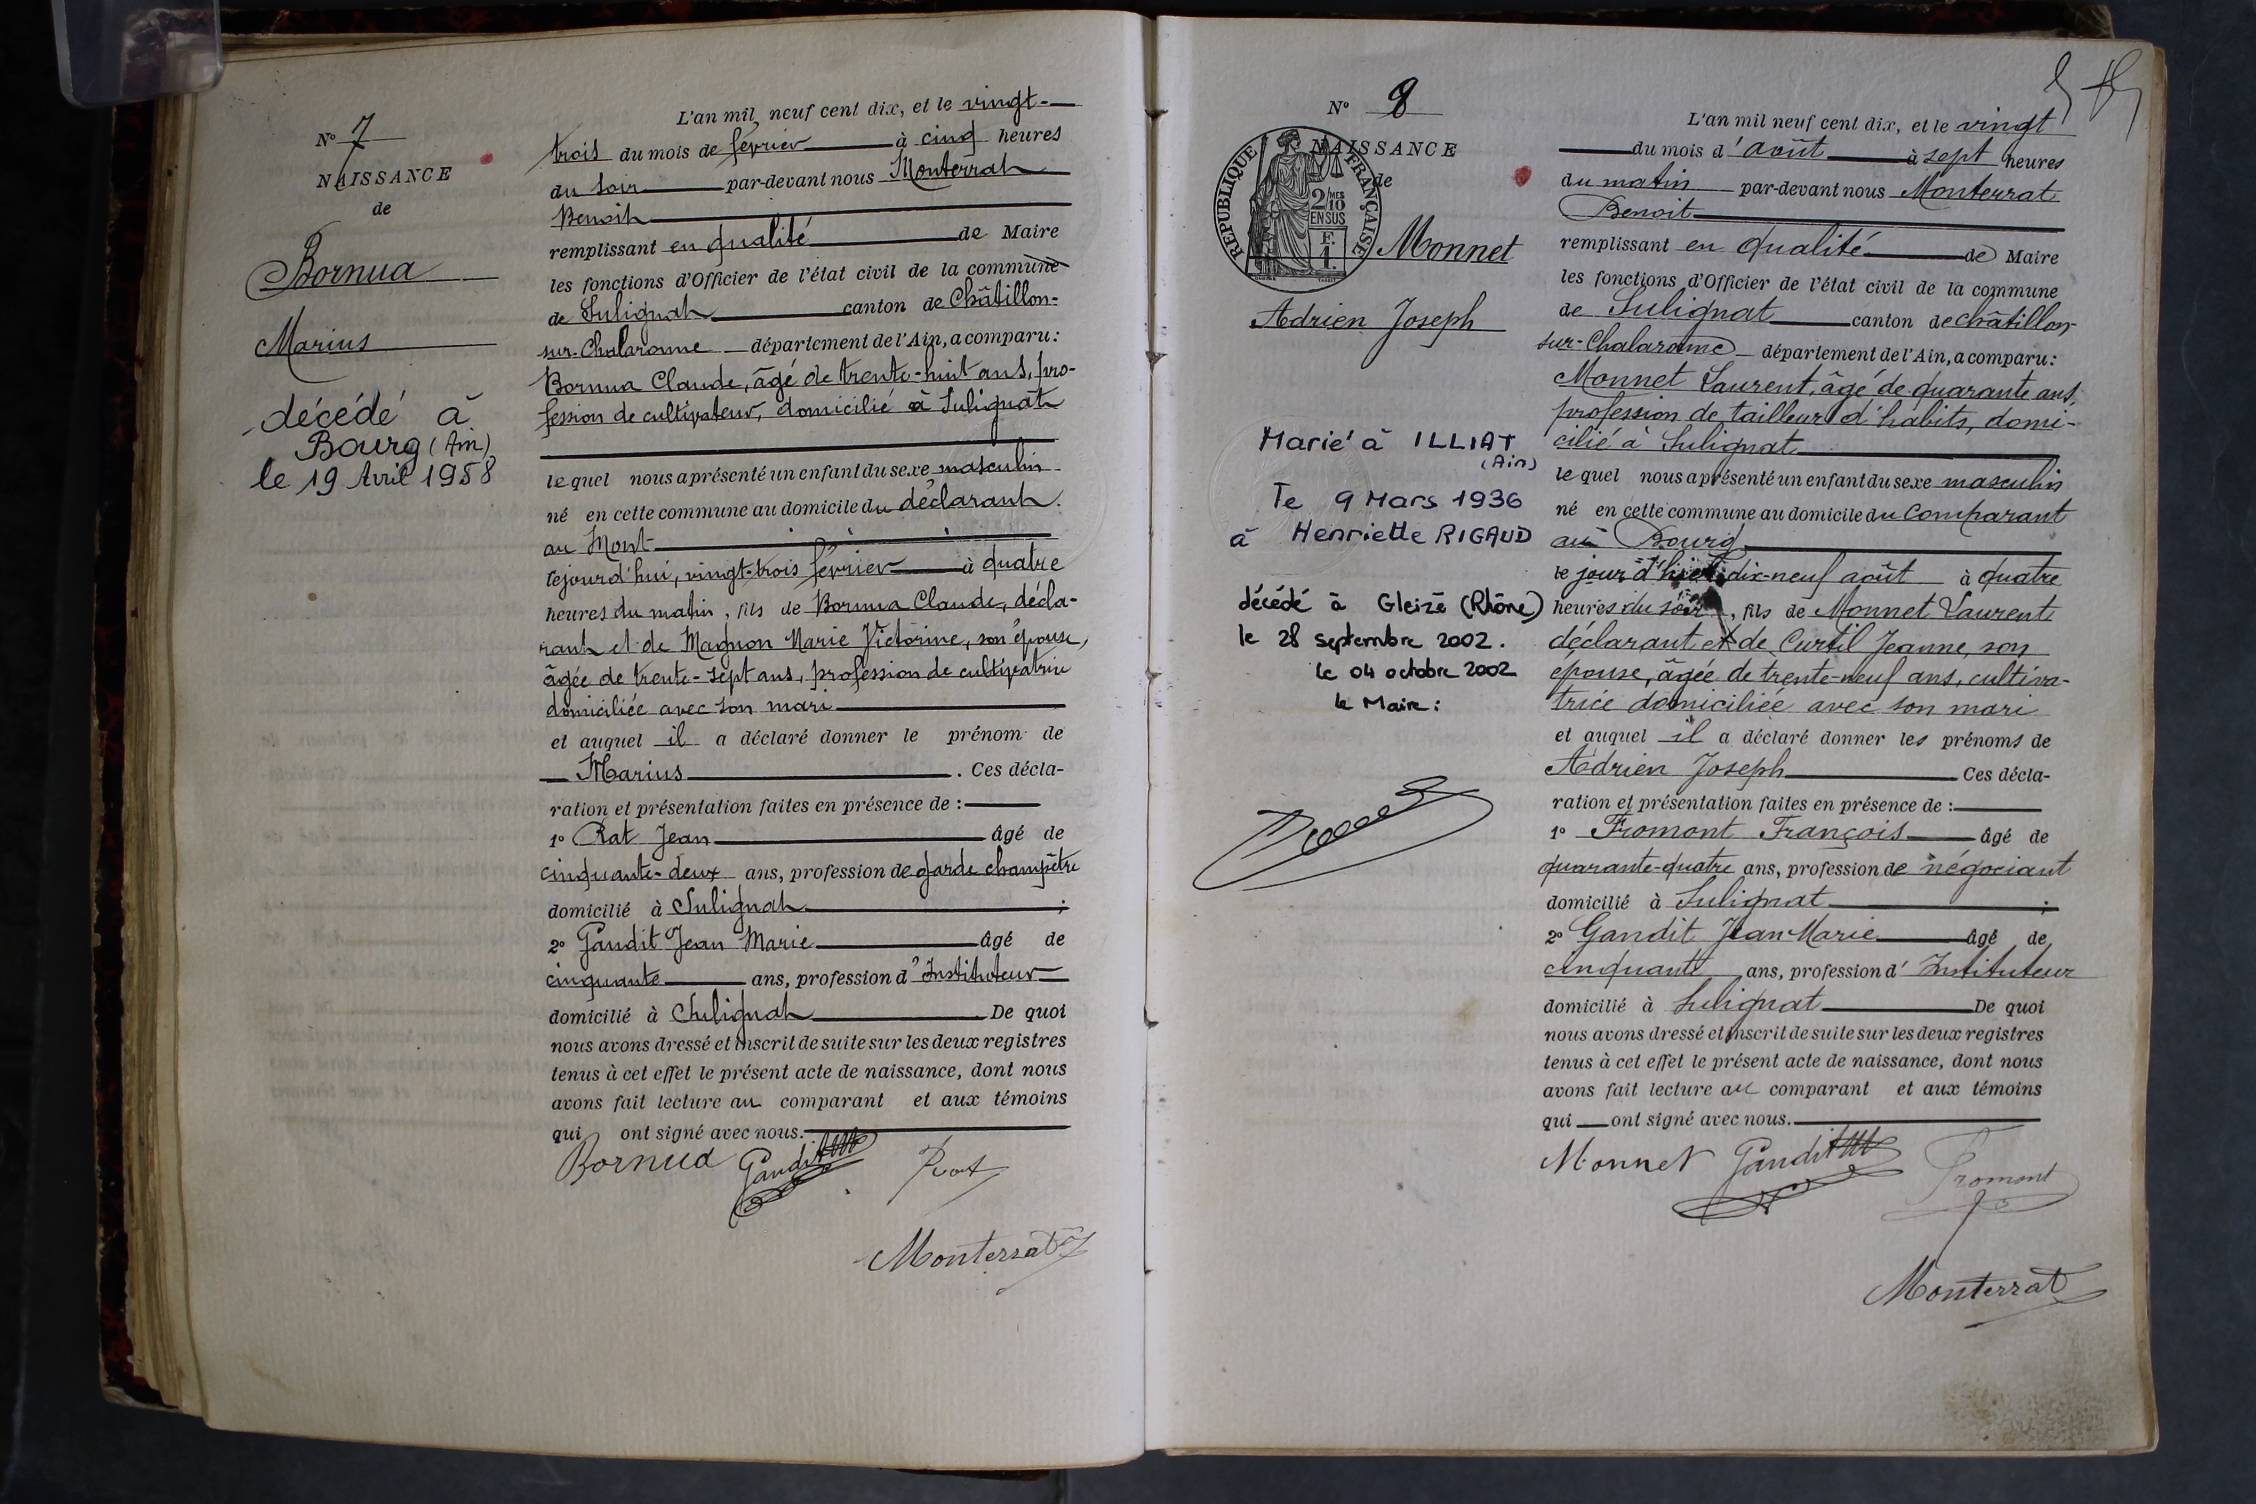 N° 7
NAISSANCE
de
Bornua
Marius
décédé à
Bourg (Ain)
le 19 Avril 1958
L'an mil neuf cent dix, et le vingt-
trois du mois de février à cinq heures
du soir par-devant nous Monterrat
Benoit
remplissant en qualité de Maire
les fonctions d'Officier de l'état civil de la commune
de Sulignat canton de Châtillon-
sur-Chalaronne département de l'Ain, a comparu:
Bornua Claude, âgé de trente-huit ans, pro-
fession de cultivateur, domicilié à Sulignat
lequel nous a présenté un enfant du sexe masculin
né en cette commune au domicile du déclarant.
au Mont
le jourd'hui, vingt-trois février à quatre
heures du matin, fils de Bornua Claude, décla-
rant et de Magnon Marie Victorine, son épouse,
âgée de trente-sept ans, profession de cultivatrice
domiciliée avec son mari
et auquel il a déclaré donner le prénom de
Marius. Ces décla-
ration et présentation faites en présence de :
1° Rat Jean âgé de
cinquante-deux ans, profession de garde champêtre
domicilié à Sulignat ;
2° Gandit Jean Marie âgé de
cinquante ans, profession d'Instituteur
domicilié à Sulignat De quoi
nous avons dressé et inscrit de suite sur les deux registres
tenus à cet effet le présent acte de naissance, dont nous
avons fait lecture au comparant et aux témoins
qui ont signé avec nous.
Bornua Gandit Rat
Monterrat
N° 8
NAISSANCE
de
RÉPUBLIQUE FRANÇAISE
2/10 MES
EN SUS
F.
1.
Monnet
Adrien Joseph
Marié à ILLIAT
(Ain)
Le 9 Mars 1936
à Henriette RIGAUD
décédé à Gleizé (Rhône)
le 28 septembre 2002.
le 04 octobre 2002
le Maire:
L'an mil neuf cent dix, et le vingt
du mois d'août à sept heures
du matin par-devant nous Monterrat
Benoit
remplissant en qualité de Maire
les fonctions d'Officier de l'état civil de la commune
de Sulignat canton de Châtillon-
sur-Chalaronne département de l'Ain, a comparu:
Monnet Laurent, âgé de quarante ans,
profession de tailleur d'habits, domi-
cilié à Sulignat
lequel nous a présenté un enfant du sexe masculin
né en cette commune au domicile du comparant
au Bourg
le jour d'hier dix-neuf août à quatre
heures du soir, fils de Monnet Laurent
déclarant et de Curtil Jeanne, son
épouse, âgée de trente-neuf ans, cultiva-
trice domiciliée avec son mari
et auquel il a déclaré donner les prénoms de
Adrien Joseph Ces décla-
ration et présentation faites en présence de :
1° Fromont François âgé de
quarante-quatre ans, profession de négociant
domicilié à Sulignat ;
2° Gandit Jean Marie âgé de
cinquante ans, profession d'Instituteur
domicilié à Sulignat De quoi
nous avons dressé et inscrit de suite sur les deux registres
tenus à cet effet le présent acte de naissance, dont nous
avons fait lecture au comparant et aux témoins
qui ont signé avec nous.
Monnet Gandit Fromont
Monterrat